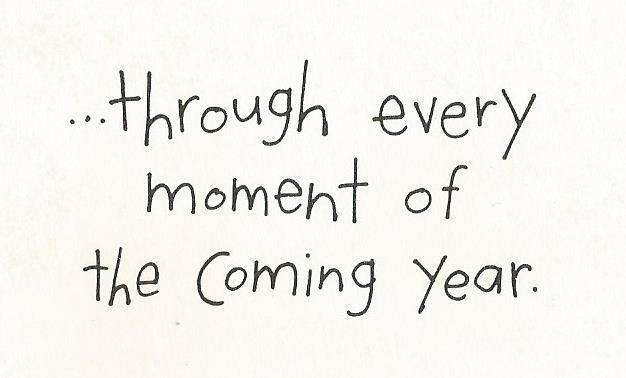 ...through every
moment of
the coming year.